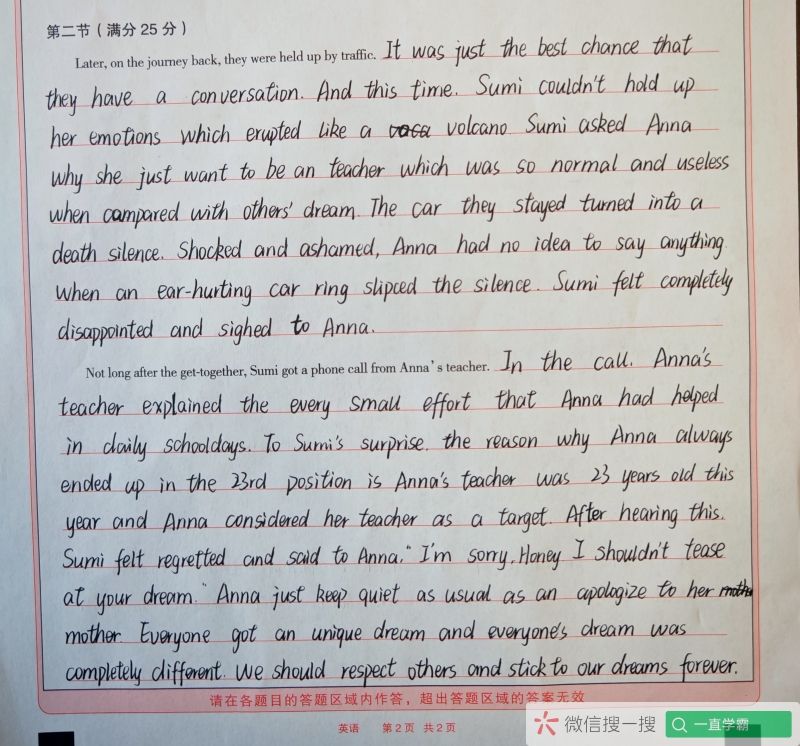 第二节（满分 25 分）
Later, on the journey back, they were held up by traffic. It was just the best chance that
they have a conversation. And this time. Sumi couldn't hold up
her emotions which erupted like a volcano Sumi asked Anna
why she just want to be an teacher which was so normal and useless
when compared with others' dream. The car they stayed turned into a
death silence. Shocked and ashamed, Anna had no idea to say anything
when an ear-hurting car ring slipced the silence. Sumi felt completely
disappointed and sighed to Anna.
Not long after the get-together, Sumi got a phone call from Anna's teacher. In the call. Anna's
teacher explained the every small effort that Anna had helped
in daily schooldays. To Sumi's surprise. the reason why Anna always
ended up in the 23rd position is Anna's teacher was 23 years old this
year and Anna considered her teacher as a target. After hearing this.
Sumi felt regretted and said to Anna." I'm sorry. Honey I shouldn't tease
at your dream." Anna just keep quiet as usual as an apologize to her
mother. Everyone got an unique dream and everyone's dream was
completely different. We should respect others and stick to our dreams forever.
请在各题目的答题区域内作答，超出答题区域的答案无效
英语 第2页 共2页
微信搜一搜 一直学霸